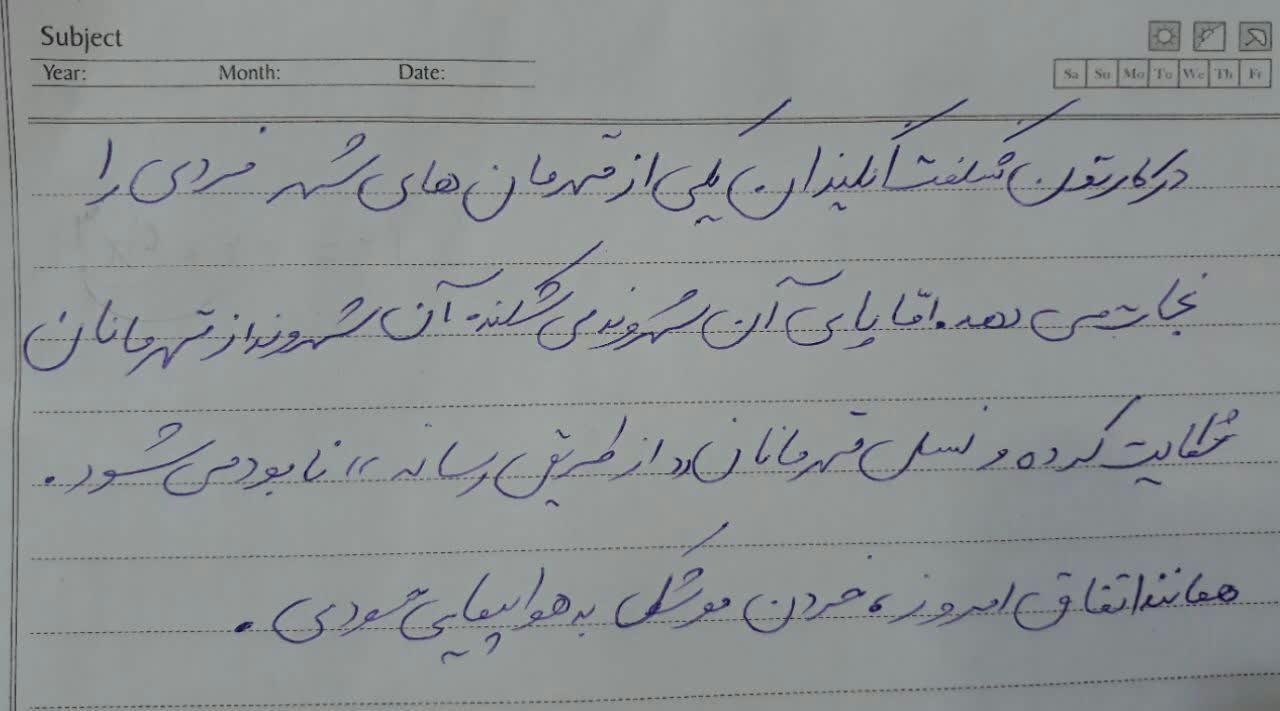 Subject
Year: Month: Date:
Sa Su Mo Tu We Th Fr
در کارتون شگفت انگیزان یکی از قهرمان های شهر فردی را
نجات می دهد. امّا پای آن شهروند می شکند. آن شهروند از قهرمانان
شکایت کرده و نسل قهرمانان «از طریق رسانه» نابود می شود.
همانند اتفاق امروز، خردن موشک به هواپیمایی سعودی.